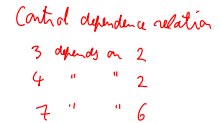 Control dependence relation
3 depends on 2
4 " " 2
7 " " 6